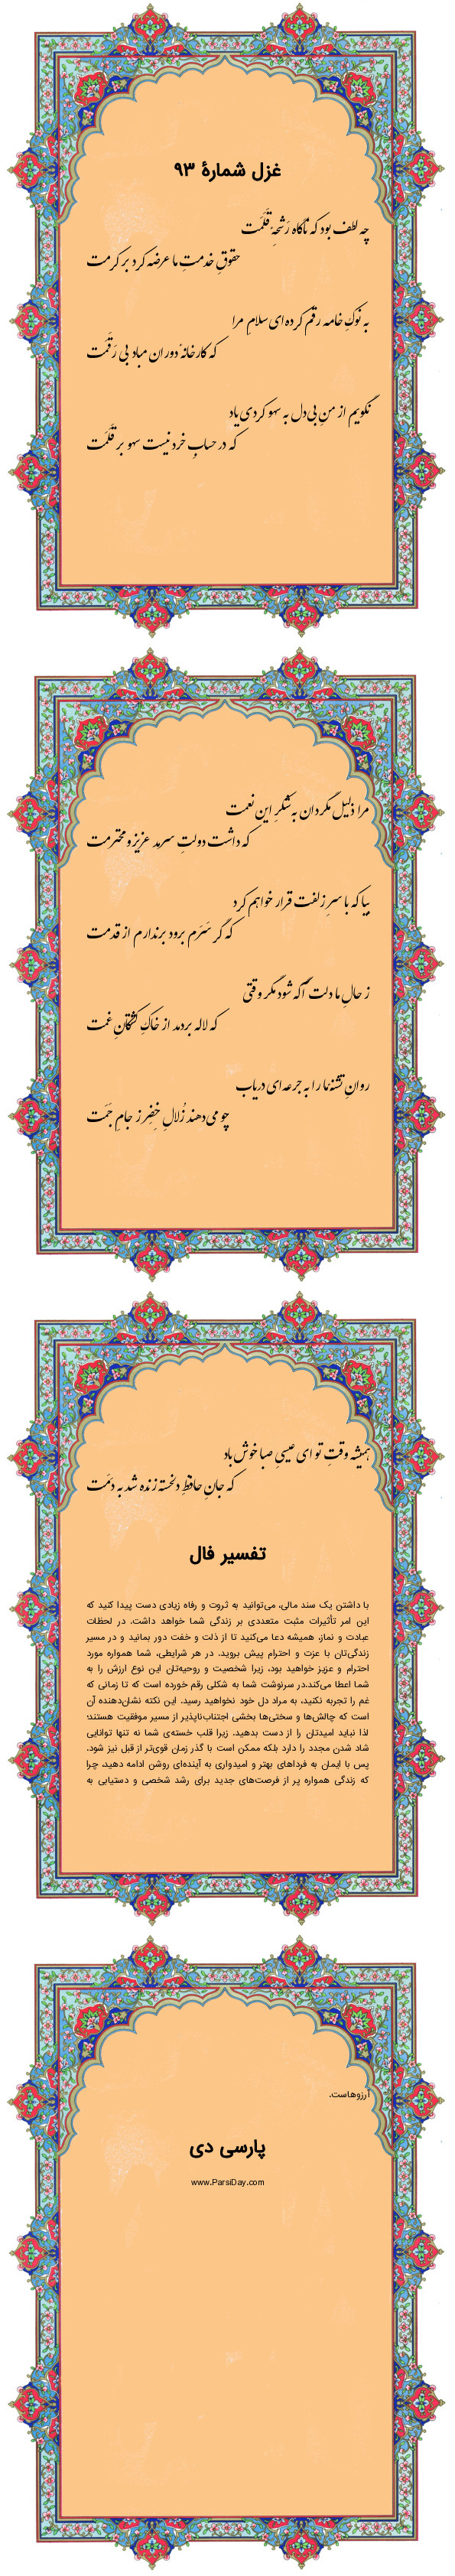 غزل شمارهٔ ۹۳
چه لطف بود که ناگاه رَشحِهٔ قَلَمَت
حقوقِ خدمتِ ما عرضه کرد بر کرمت
به نوکِ خامه رقم کرده‌ای سلامِ مرا
که کارخانهٔ دوران مباد بی رَقَمَت
نگویم از منِ بی‌دل به سهو کردی یاد
که در حسابِ خرد نیست سهو بر قلَمَت
مرا ذلیل مگردان به شُکرِ این نعمت
که داشت دولتِ سرمد عزیز و محترمت
بیا که با سرِ زلفت قرار خواهم کرد
که گر سَرَم برود برندارم از قدمت
ز حالِ ما دلت آگه شود مگر وقتی
که لاله بردمد از خاکِ کُشتگانِ غمت
روانِ تشنهٔ ما را به جرعه‌ای دریاب
چو می‌دهند زُلالِ خِضِر ز جامِ جَمَت
همیشه وقتِ تو ای عیسیِ صبا خوش باد
که جانِ حافظِ دلخسته زنده شد به دَمَت
تفسیر فال
با داشتن یک سند مالی، می‌توانید به ثروت و رفاه زیادی دست پیدا کنید که
این امر تأثیرات مثبت متعددی بر زندگی شما خواهد داشت. در لحظات
عبادت و نماز، همیشه دعا می‌کنید تا از ذلت و خفت دور بمانید و در مسیر
زندگی‌تان با عزت و احترام پیش بروید. در هر شرایطی، شما همواره مورد
احترام و عزیز خواهید بود، زیرا شخصیت و روحیه‌تان این نوع ارزش را به
شما اعطا می‌کند.در سرنوشت شما به شکلی رقم خورده است که تا زمانی که
غم را تجربه نکنید، به مراد دل خود نخواهید رسید. این نکته نشان‌دهنده آن
است که چالش‌ها و سختی‌ها بخشی اجتناب‌ناپذیر از مسیر موفقیت هستند؛
لذا نباید امیدتان را از دست بدهید. زیرا قلب خسته‌ی شما نه تنها توانایی
شاد شدن مجدد را دارد بلکه ممکن است با گذر زمان قوی‌تر از قبل نیز شود.
پس با ایمان به فرداهای بهتر و امیدواری به آینده‌ای روشن ادامه دهید، چرا
که زندگی همواره پر از فرصت‌های جدید برای رشد شخصی و دستیابی به
آرزوهاست.
پارسی دی
www.ParsiDay.com